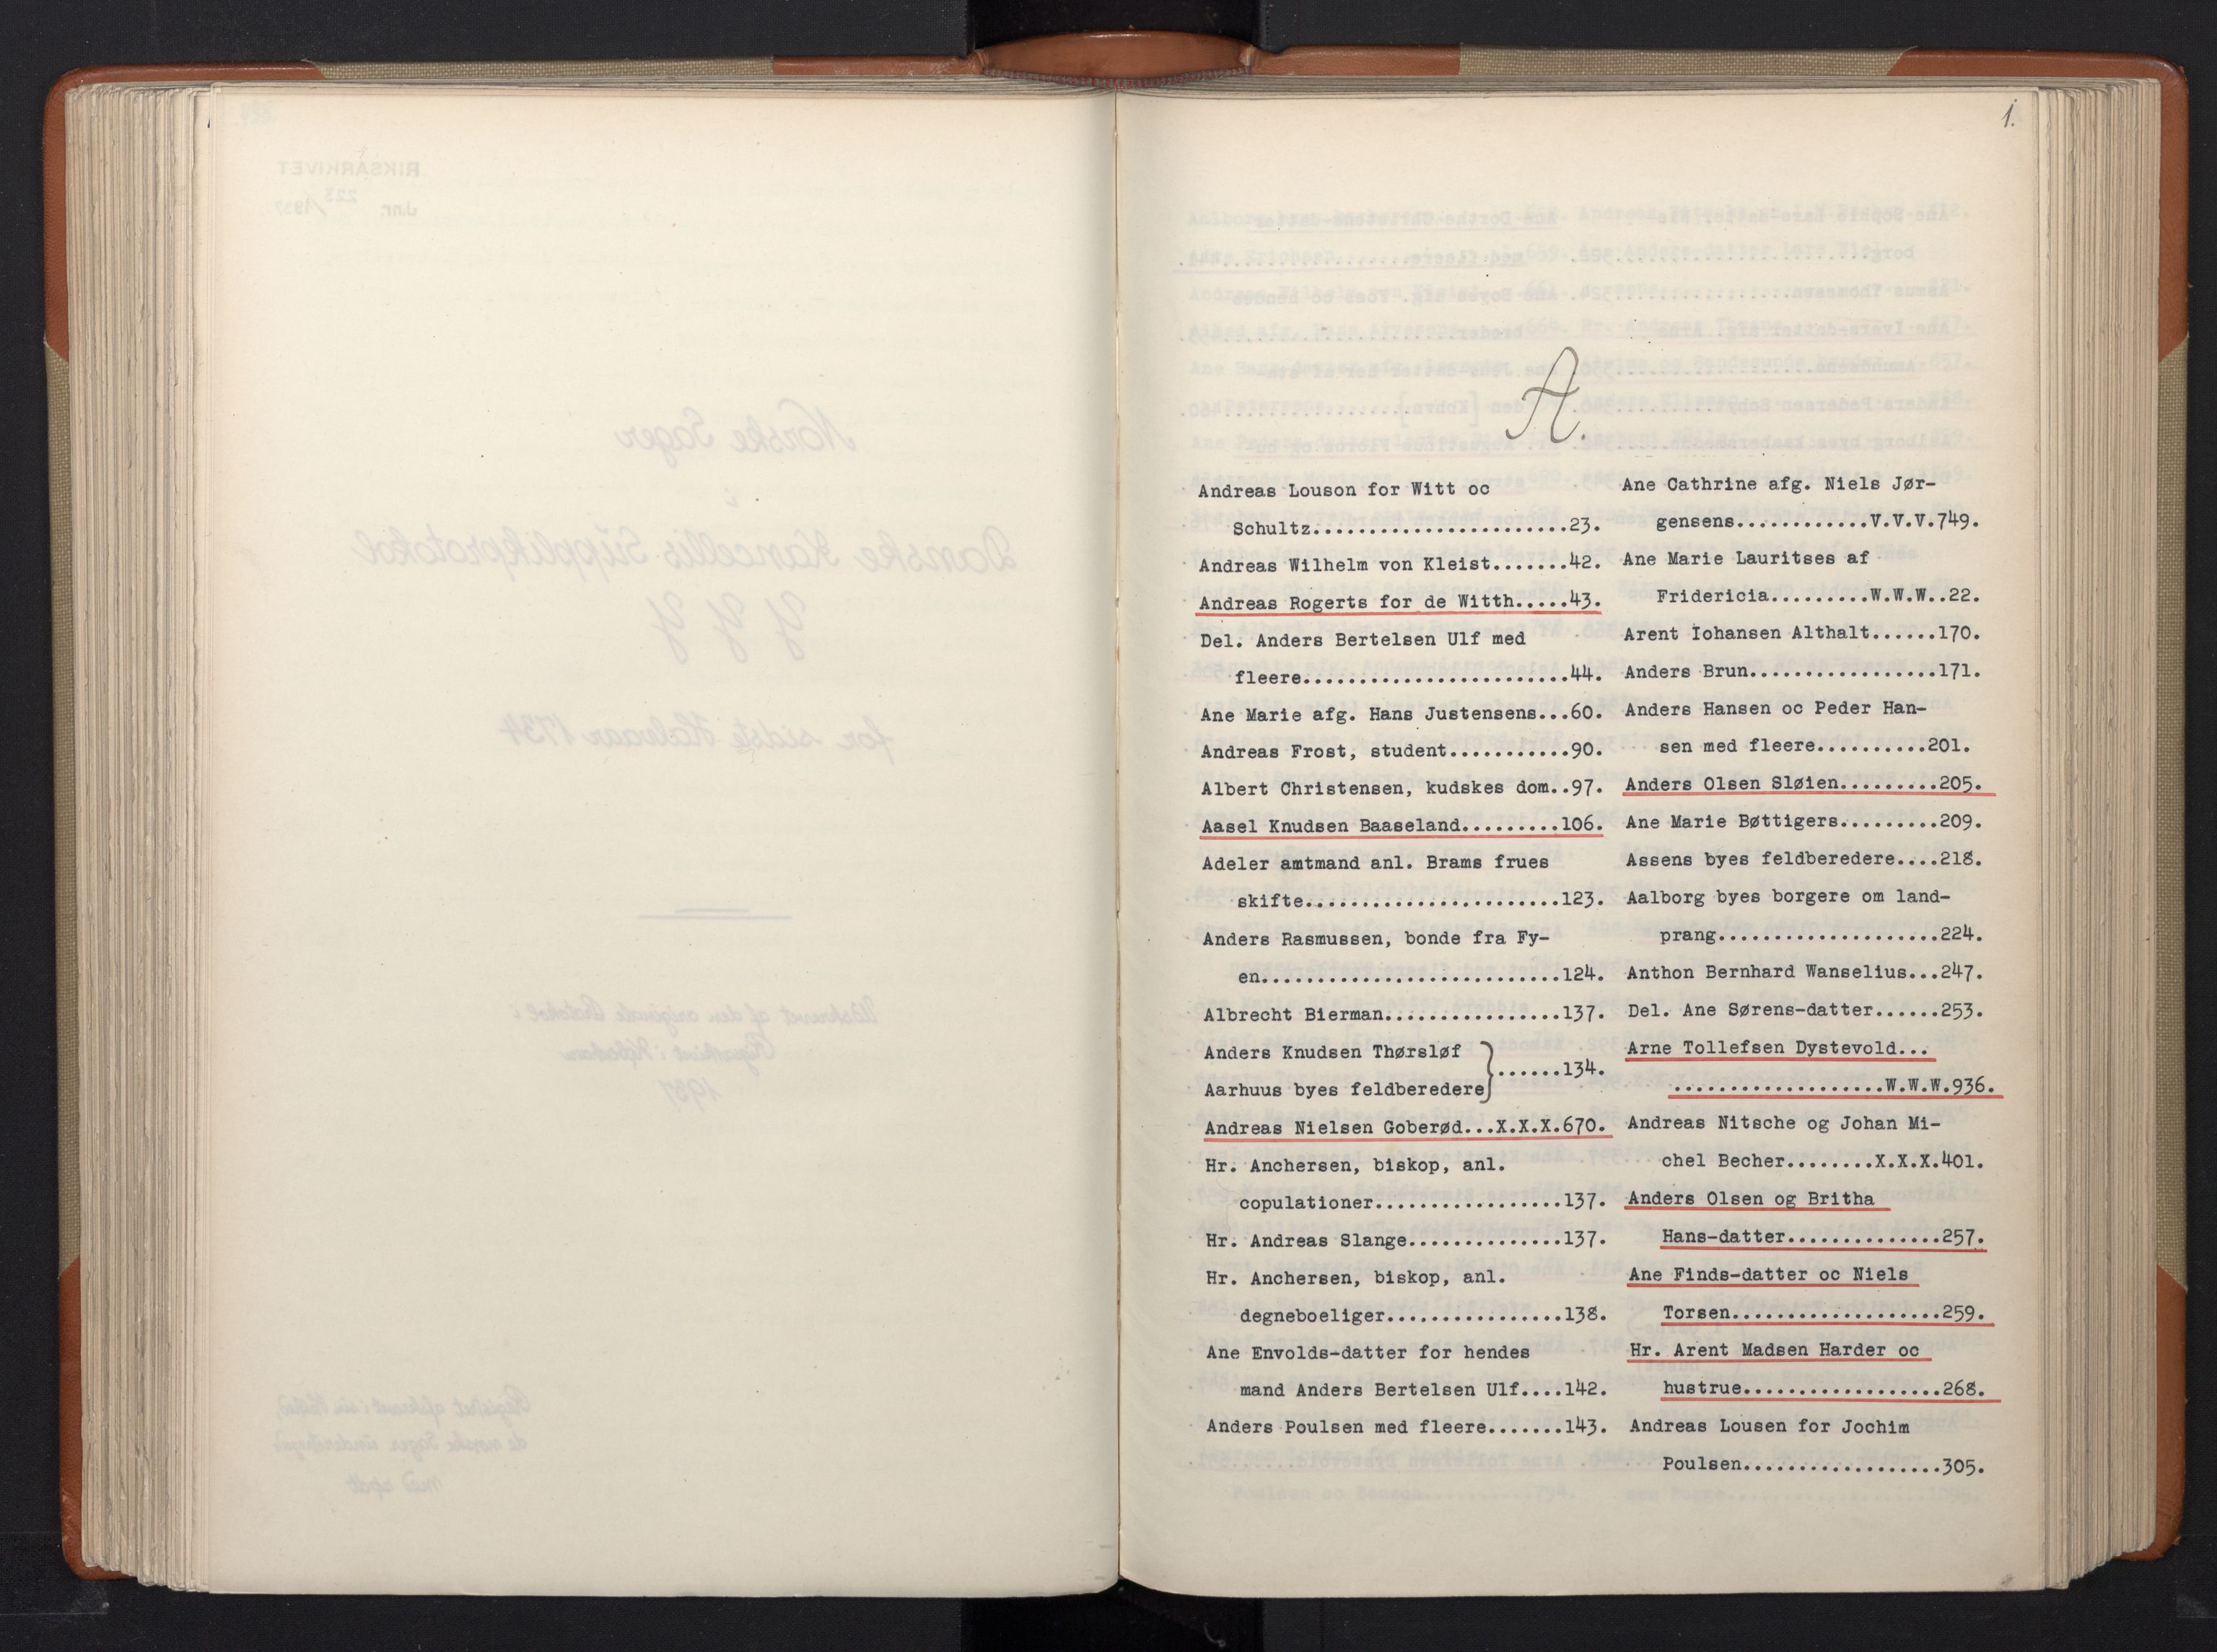 1.
A.
Andreas Louson for Witt oc
Schultz.......................23.
Andreas Wilhelm von Kleist.......42.
Andreas Rogerts for de Witth.....43.
Del. Anders Bertelsen Ulf med
fleere........................44.
Ane Marie afg. Hans Justensens...60.
Andreas Frost, student...........90.
Albert Christensen, kudskes dom..97.
Aasel Knudsen Baaseland.........106.
Adeler amtmand anl. Brams frues
skifte.......................123.
Anders Rasmussen, bonde fra Fy-
en...........................124.
Albrecht Bierman................137.
Anders Knudsen Thørsløf
Aarhuus byes feldberedere} ......134.
Andreas Nielsen Goberød...X.X.X.670.
Hr. Anchersen, biskop, anl.
copulationer.................137.
Hr. Andreas Slange..............137.
Hr. Anchersen, biskop, anl.
degneboeliger................138.
Ane Envolds-datter for hendes
mand Anders Bertelsen Ulf....142.
Anders Poulsen med fleere.......143.
Ane Cathrine afg. Niels Jør-
gensens............V.V.V.749.
Ane Marie Lauritses af
Fridericia.........W.W.W..22.
Arent Iohansen Althalt......170.
Anders Brun.................171.
Anders Hansen oc Peder Han-
sen med fleere..........201.
Anders Olsen Sløien.........205.
Ane Marie Bøttigers.........209.
Assens byes feldberedere....218.
Aalborg byes borgere om land-
prang....................224.
Anthon Bernhard Wanselius...247.
Del. Ane Sørens-datter......253.
Arne Tollefsen Dystevold...
...................W.W.W.936.
Andreas Nitsche og Johan Mi-
chel Becher........X.X.X.401.
Anders Olsen og Britha
Hans-datter..............257.
Ane Finds-datter oc Niels
Torsen...................259.
Hr. Arent Madsen Harder oc
hustrue..................268.
Andreas Lousen for Jochim
Poulsen..................305.